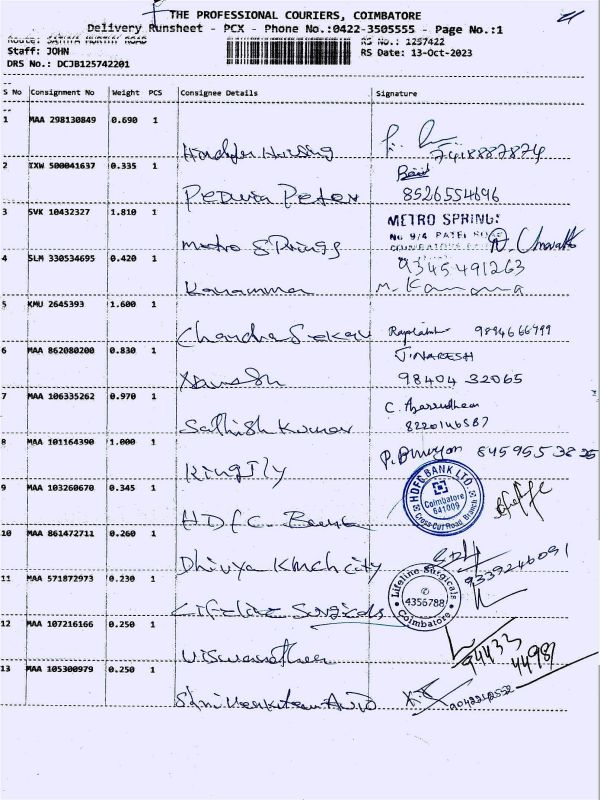 THE PROFESSIONAL COURIERS, COIMBATORE
Delivery Runsheet - PCX - Phone No.:0422-3505555 - Page No.:1
Route: SATHYA MURTHY ROAD RS No.: 1257422
Staff: JOHN RS Date: 13-Oct-2023
DRS No.: DCJB125742201
S No Consignment No Weight PCS Consignee Details Signature
1 MAA 298130849 0.690 1
2 IXW 500041637 0.335 1
Peter 8526554696
3 SVK 10432327 1.810 1 METRO SPRINGS
No 9/4 PATEL ROAD
Metro Springs
4 SLM 330534695 0.420 1 9345491263
5 KMU 2645393 1.600 1
Chandra Sekar 9894666499
6 MAA 862080200 0.830 1 J. NARESH
Naresh 98404 32065
7 MAA 106335262 0.970 1
Sathish Kumar 8220146587
8 MAA 101164390 1.000 1
Kingfly
9 MAA 103260670 0.345 1 HDFC BANK LTD.
Coimbatore
641009
Cross-Cut Road Branch
HDFC Bank
10 MAA 861472711 0.260 1
Dhivya Kmch city
11 MAA 571872973 0.230 1 9339246091
Lifeline Surgicals
4356788
Coimbatore
Lifeline Surgicals
12 MAA 107216166 0.250 1
Viswanathan 94433 44981
13 MAA 105300979 0.250 1